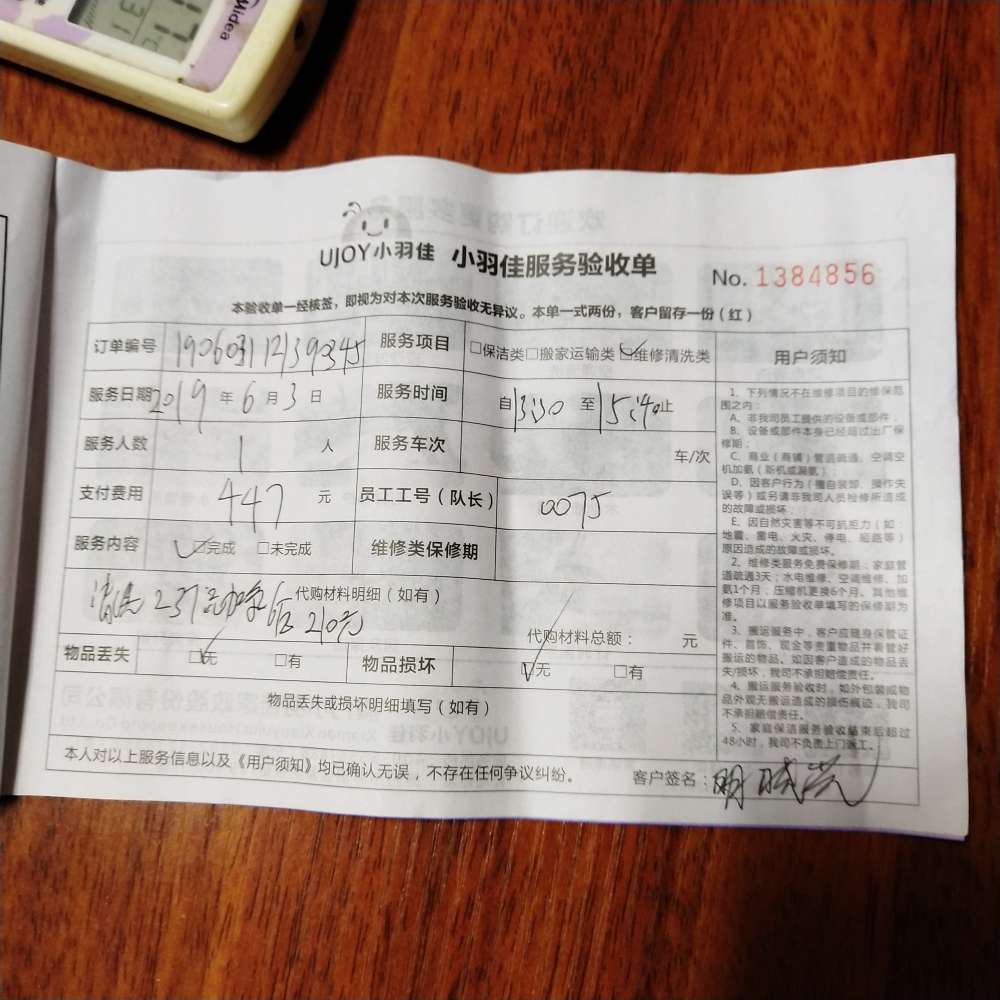 Midea
UJOY小羽佳 小羽佳服务验收单
No. 1384856
本验收单一经核签，即视为对本次服务验收无异议。本单一式两份，客户留存一份（红）
订单编号 服务项目 □保洁类□搬家运输类☑维修清洗类 用户须知
服务日期 2019 年 6 月 3 日 服务时间 自13:30 至15:40止
服务人数 1 人 服务车次 车/次
支付费用 447 元 员工工号（队长） 0075
服务内容 ☑完成 □未完成 维修类保修期
237元 210元
代购材料明细（如有）
代购材料总额： 元
物品丢失 ☑无 □有 物品损坏 ☑无 □有
物品丢失或损坏明细填写（如有）
本人对以上服务信息以及《用户须知》均已确认无误，不存在任何争议纠纷。 客户签名：
1、下列情况不在维修项目的维保范
围之内：
A、非我司员工提供的设备或部件；
B、设备或部件本身已经超过出厂保
修期；
C、商业（商铺）管道疏通、空调空
机加氨（新机或漏氨）；
D、因客户行为（擅自装卸、操作失
误等）或另请非我司人员检修所造成
的故障或损坏；
E、因自然灾害等不可抗拒力（如：
地震、雷电、火灾、停电、短路等）
原因造成的故障或损坏。
2、维修类服务免费保修期：家庭管
道疏通3天；水电维修、空调维修、加
氨1个月；压缩机更换6个月。其他维
修项目以服务验收单填写的保修期为
准。
3、搬运服务中，客户应随身保管证
件、首饰、现金等贵重物品并看管好
搬运的物品。如因客户造成的物品丢
失/损坏，我司不承担赔偿责任。
4、搬运服务验收时，如外包装或物
品外观无搬运造成的损伤痕迹，我司
不承担赔偿责任。
5、家庭保洁服务验收结束后超过
48小时，我司不负责上门返工。